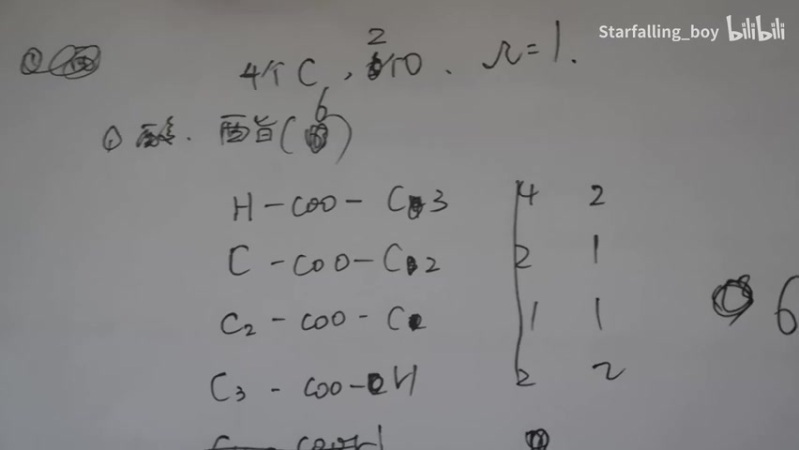 Starfalling_boy bilibili
4个C，2个O、Ω=1.
① 酸、酯(6)
H-COO-C3 4 2
C-COO-C2 2 1
C2-COO-C 1 1
C3-COO-H 2 2
6